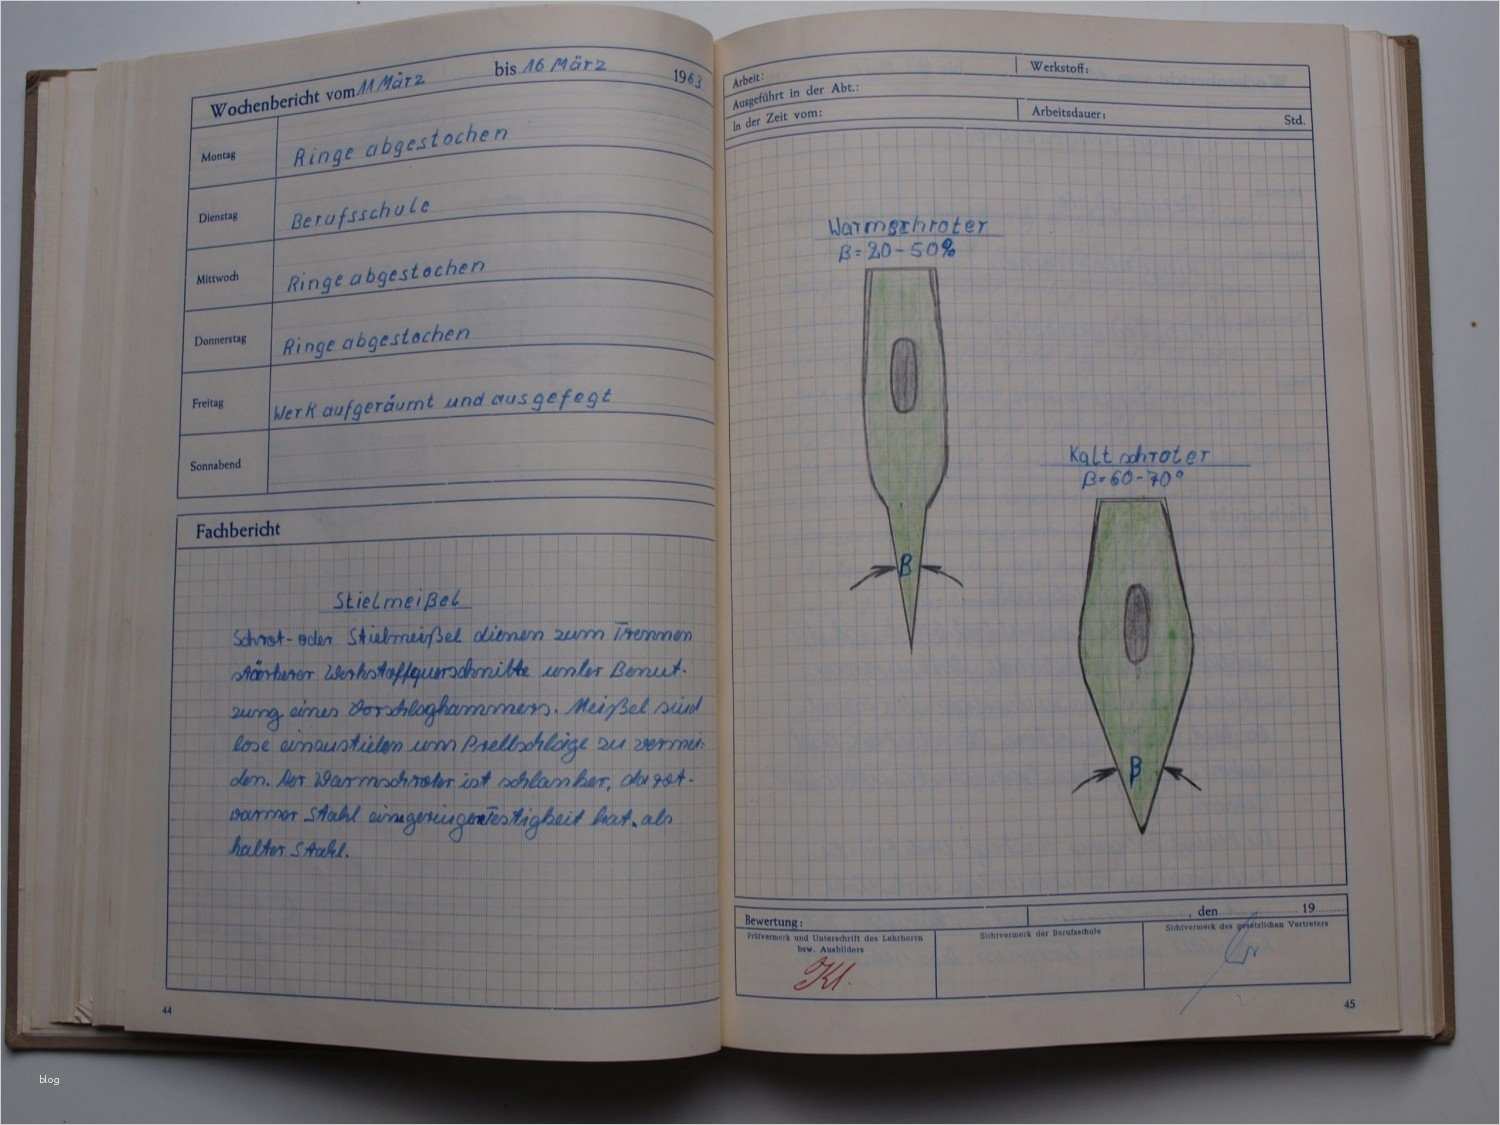 Wochenbericht vom 11 März bis 16 März 1963
Montag Ringe abgestochen
Dienstag Berufsschule
Mittwoch Ringe abgestochen
Donnerstag Ringe abgestochen
Freitag Werk aufgeräumt und ausgefegt
Sonnabend
Fachbericht
Stielmeißel
Schrot- oder Stielmeißel dienen zum Trennen
stärkerer Werkstoffquerschnitte unter Benut-
zung eines Vorschloghammers. Meißel sind
lose einzustielen um Prellschläge zu vermei-
den. Der Warmschroter ist schlanker, da rot-
warmer Stahl eine geringere Festigkeit hat, als
kalter Stahl.
44
Arbeit: Werkstoff:
Ausgeführt in der Abt.:
In der Zeit vom: Arbeitsdauer: Std.
Warmschroter
β=20-50%
β
Kaltschroter
β=60-70°
β
Bewertung: , den 19
Prüfvermerk und Unterschrift des Lehrherrn
bzw. Ausbilders
Sichtvermerk der Berufsschule
Sichtvermerk des gesetzlichen Vertreters
Kl.
45
blog